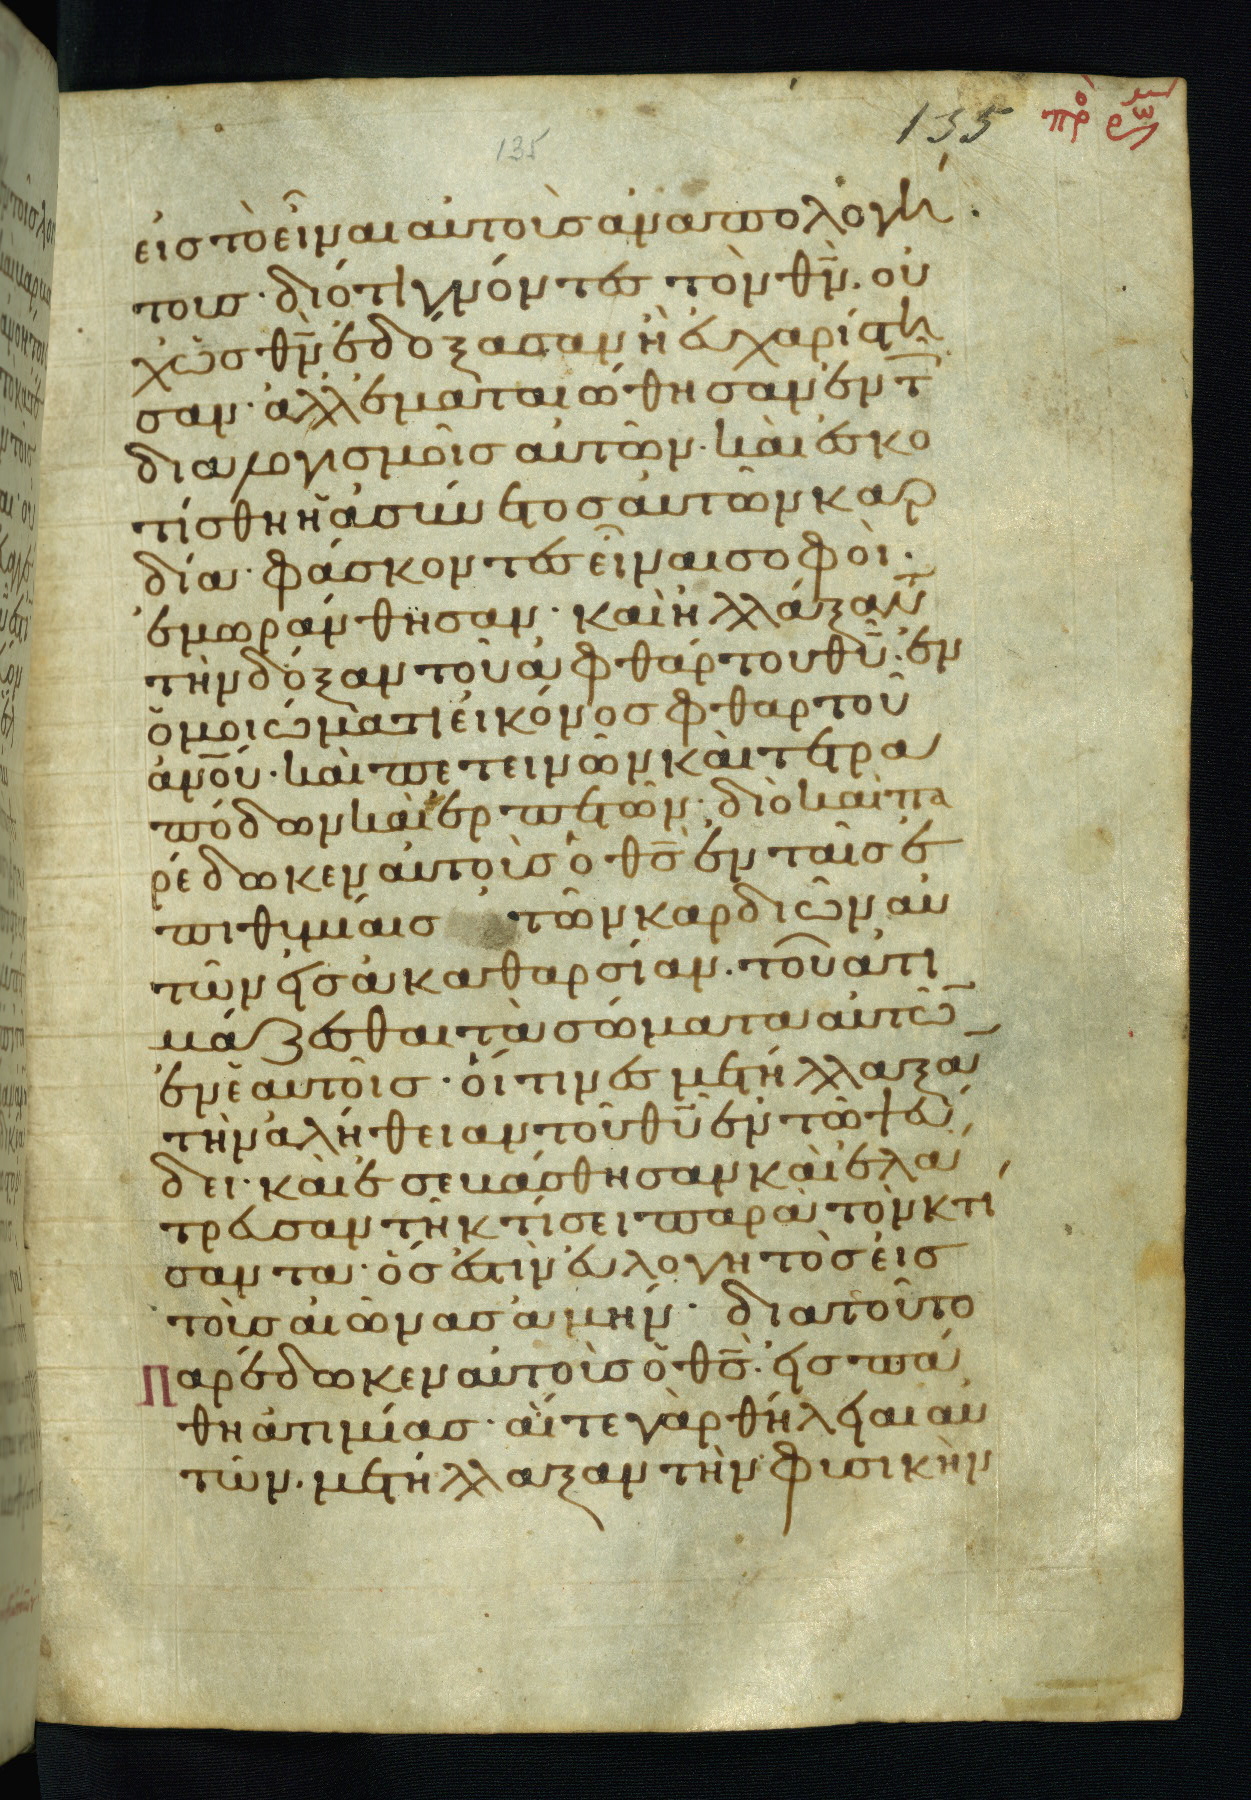 135 πρ ρω
135
εἰς τὸ εἶναι αὐτοὺς ἀναπολογή
τους· διότι γνόντες τὸν θν̅. οὐ
χ ὡς θν̅ ἐδόξασαν ἢ εὐχαρίστη
σαν· ἀλλ ἐματαιώθησαν ἐν τ
διαλογισμοῖς αὐτῶν· καὶ ἐσκο
τίσθη ἡ ἀσύνετος αὐτῶν καρ
δία· φάσκοντες εἶναι σοφοὶ·
ἐμωράνθησαν· καὶ ἤλλαξαν
τὴν δόξαν τοῦ ἀφθάρτου θυ̅· ἐν
ὁμοιώματι εἰκόνος φθαρτοῦ
ανο̅υ· καὶ πετεινῶν καὶ τετρα
πόδων καὶ ἑρπετῶν· διὸ καὶ πα
ρέδωκεν αὐτοὺς ὁ θς̅ ἐν ταῖς ἐ
πιθυμίαις τῶν καρδιῶν αὐ
τῶν εἰς ἀκαθαρσίαν. τοῦ ἀτι
μάζεσθαι τὰ σώματα αὐτῶ
ἐν ἑαυτοῖς· οἵτινες μετήλλαξα
τὴν ἀλήθειαν τοῦ θυ̅ ἐν τῶ ψεύ
δει· καὶ ἐσεβάσθησαν καὶ ἐλά
τρευσαν τῆ κτίσει παρὰ τὸν κτί
σαντα· ὅς ἐστὶν εὐλογητὸς εἰς
τοὺς αἰῶνας ἀμήν· διατοῦτο
Παρέδωκεν αὐτοὺς ὁ θς̅· εἰς πά
θη ἀτιμίας· αἵ τε γὰρ θήλειαι αὐ
τῶν· μετήλλαξαν τὴν φυσικὴν